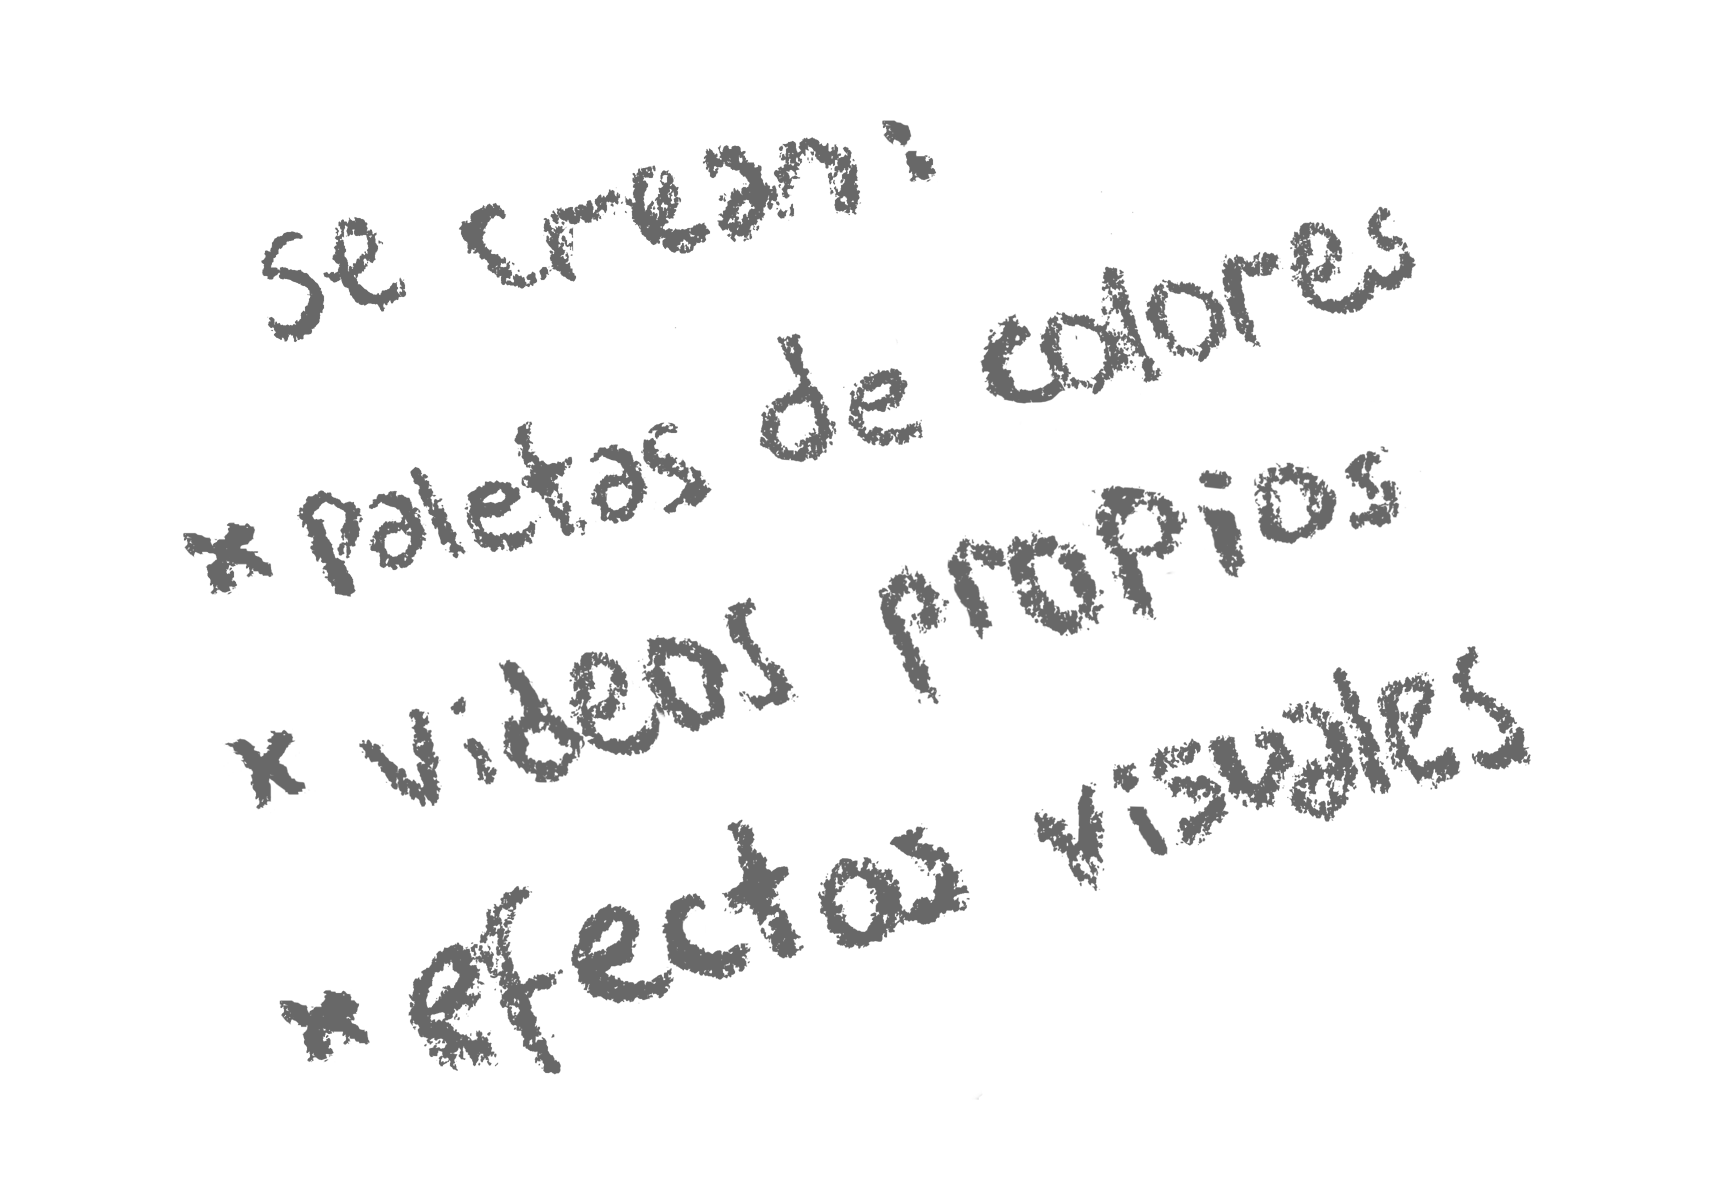 se crean:
* paletas de colores
* videos propios
* efectos visuales